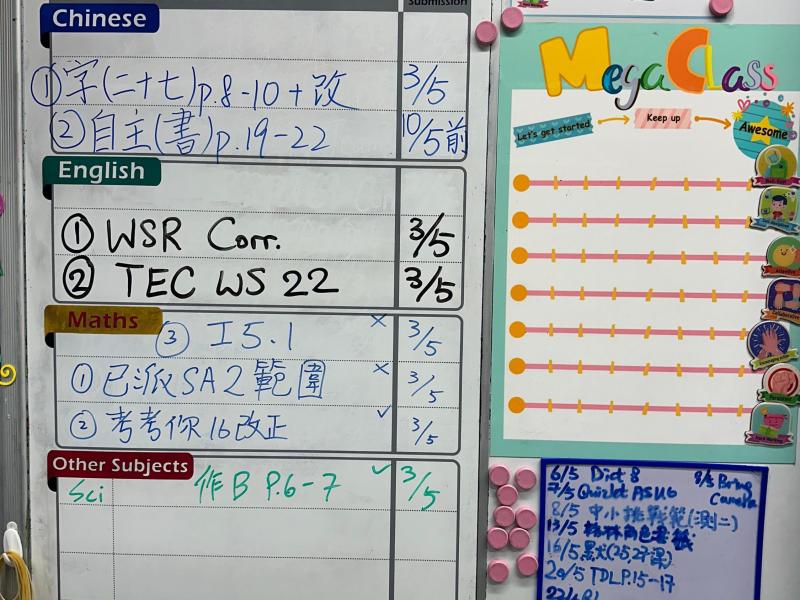 Submission
Chinese
① 字(二十七)p.8-10+改 3/5
② 自主(書)p.19-22 10/5前
English
① WSR Corr. 3/5
② TEC WS 22 3/5
Maths
③ 工5.1 × 3/5
① 已派SA2範圍 × 3/5
② 考考你16改正 ✓ 3/5
Other Subjects
Sci 作B P.6-7 ✓ 3/5
Mega Class
Let's get started
Keep up
Awesome
6/5 Dict 8
7/5 Quizlet ASU6
8/5 Bring Camera
8/5 中小挑戰範(測二)
13/5
16/5 默(25,27課)
20/5 TDL P.15-17